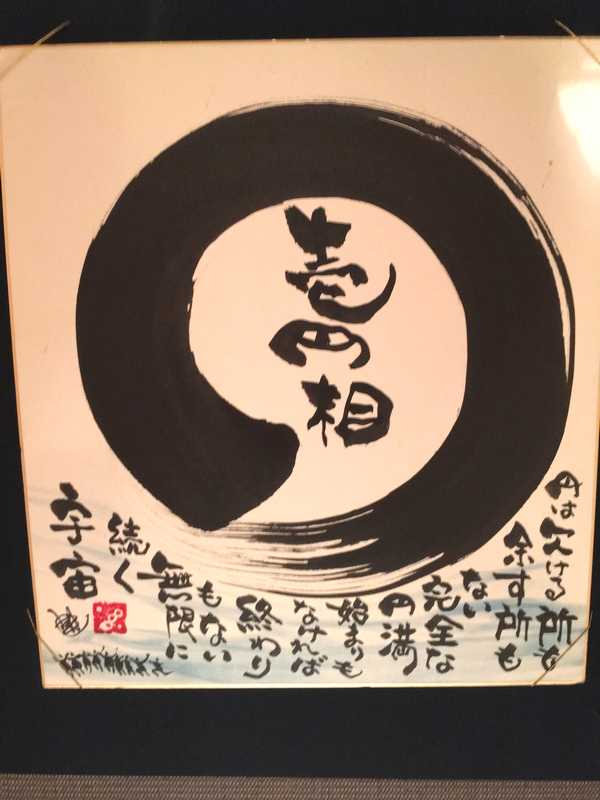 壱
円
相
円は欠ける所も
余す所も
ない
完全な
円満
始まりも
なければ
終わり
もない
無限に
続く
宇宙